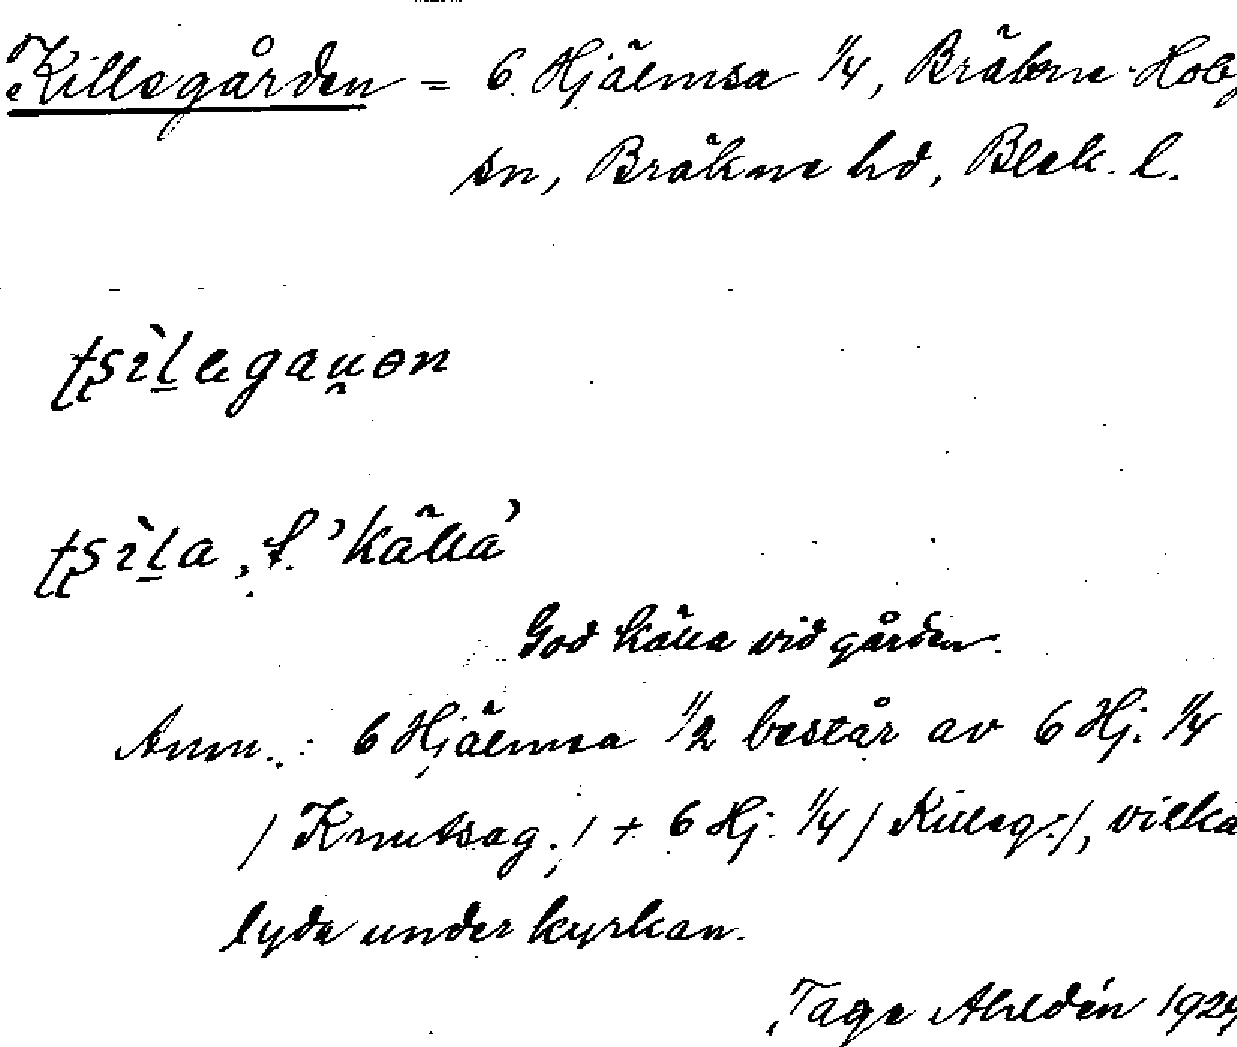 Killegården = 6 Hjälmsa 1/4, Bräkne-Hoby
sn, Bräkne hd, Blek. l.
God källa vid gården.
Anm.: 6 Hjälmsa 1/2 består av 6 Hj. 1/4
/Knutsag./ + 6 Hj. 1/4 /Killeg./, vilka
lyda under kyrkan.
Tage Ahldén